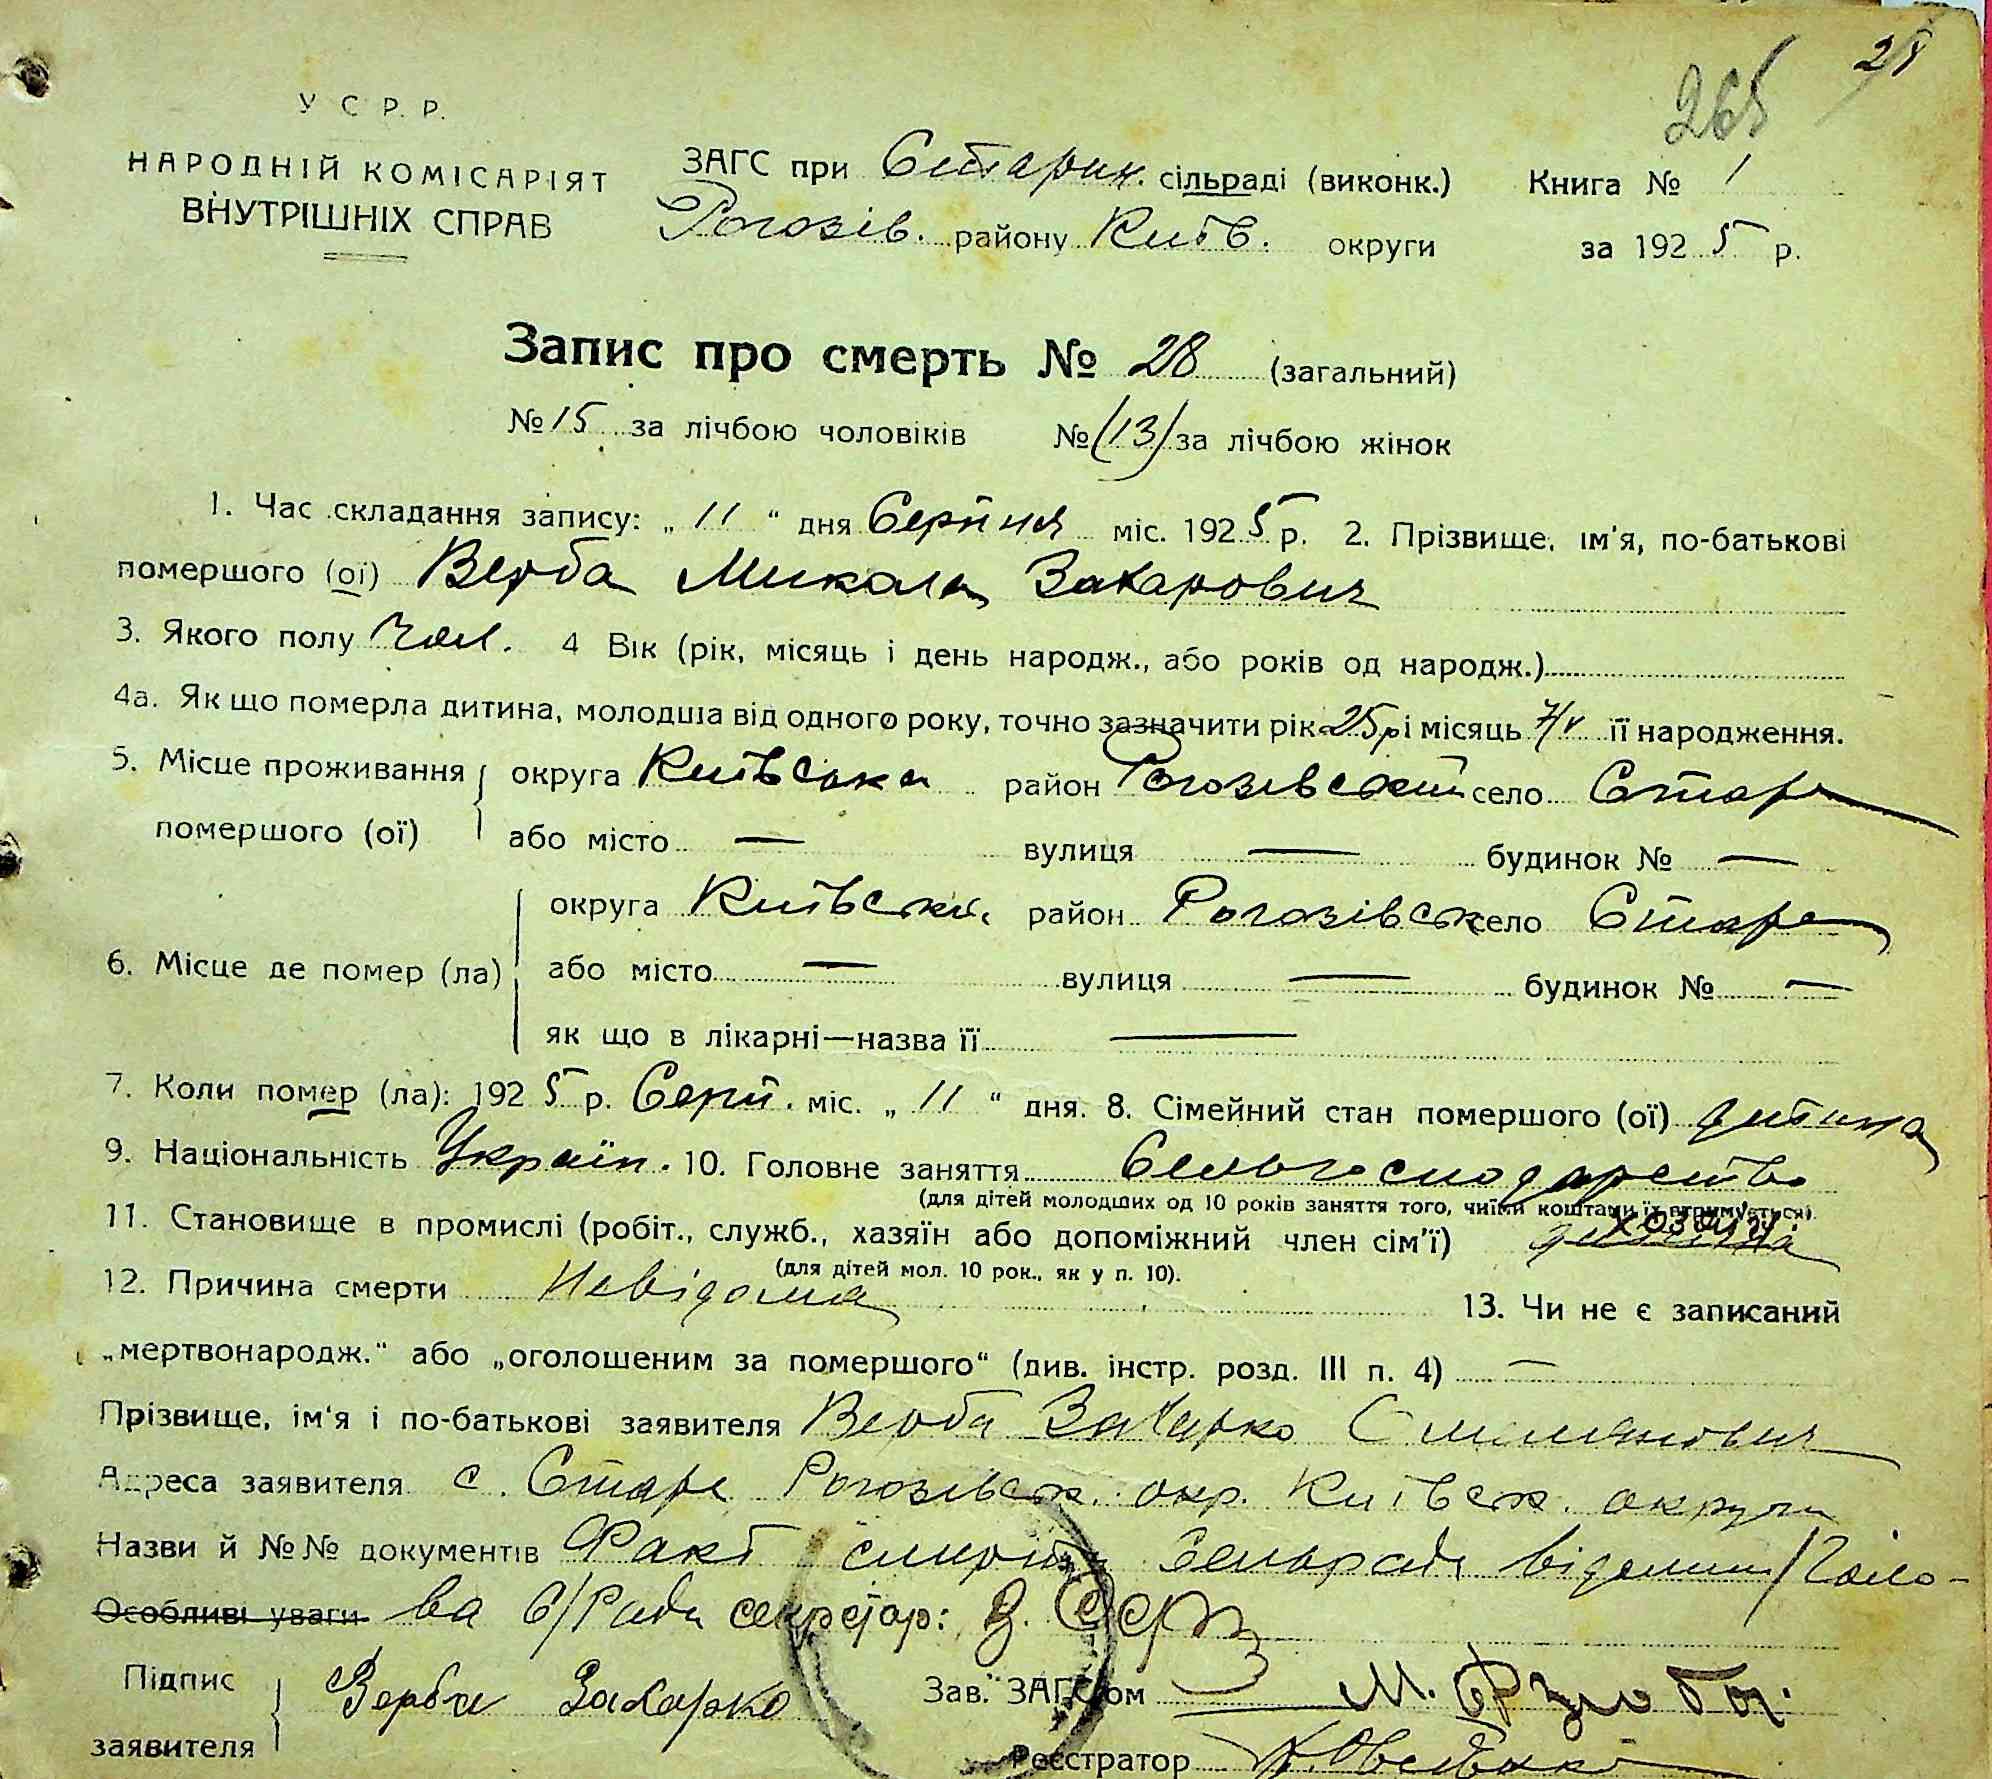 265
У С Р. Р.
НАРОДНІЙ КОМІСАРІЯТ
ВНУТРІШНІХ СПРАВ
ЗАГС при Старин. сільраді (виконк.) Книга № 1
Рогозів. району Київ. округи за 1925 р.
Запис про смерть № 28 (загальний)
№ 15 за лічбою чоловіків № (13) за лічбою жінок
1. Час складання запису: „ 11 “ дня Серпня міс. 1925 р. 2. Прізвище, ім'я, по-батькові
помершого (ої) Верба Микола Захарович
3. Якого полу чол. 4 Вік (рік, місяць і день народж., або років од народж.)
4а. Як що померла дитина, молодша від одного року, точно зазначити рік 25 р і місяць 7/V її народження.
5. Місце проживання помершого (ої) округа Київська район Рогозівський село Старе
або місто — вулиця — будинок № —
6. Місце де помер (ла) округа Київська район Рогозівськ село Старе
або місто — вулиця — будинок № —
як що в лікарні—назва її —
7. Коли помер (ла): 1925 р. Серп. міс. „ 11 “ дня. 8. Сімейний стан помершого (ої) дитина
9. Національність Україн. 10. Головне заняття Сельгосподарство
(для дітей молодших од 10 років заняття того, чиїми коштами їх втримується).
11. Становище в промислі (робіт., служб., хазяїн або допоміжний член сім'ї) хозяїн
(для дітей мол. 10 рок., як у п. 10).
12. Причина смерти Невідома 13. Чи не є записаний
„мертвонародж.“ або „оголошеним за помершого“ (див. інстр. розд. III п. 4) —
Прізвище, ім'я і по-батькові заявителя Верба Захарко
Адреса заявителя с. Старе Рогозівск. окр. Київськ. округи
Назви й №№ документів Факт смерти Сельраді відомий /Голо-
Особливі уваги ва С/Ради секретар: З.
Підпис заявителя Верба Захарко Зав. ЗАГС'ом М.
Реєстратор